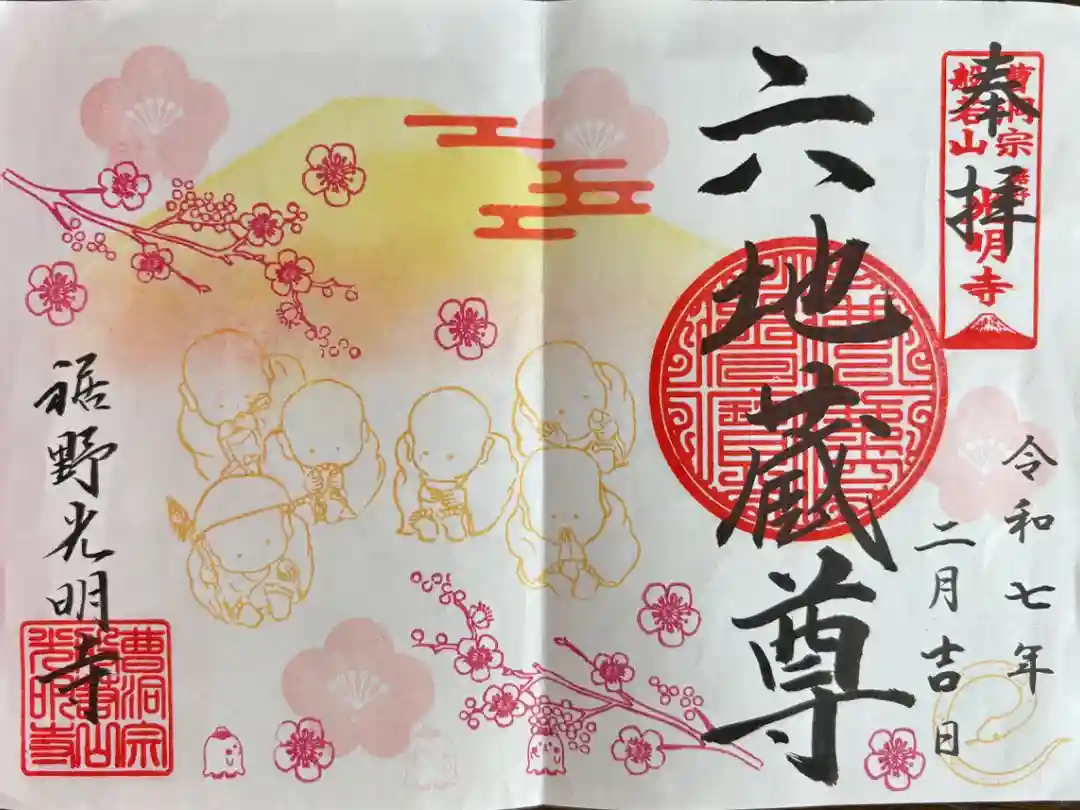 奉拝
曹洞宗
般若山
光明寺
六地蔵尊
令和七年
二月吉日
裾野光明寺
曹洞宗
般若山
光明寺